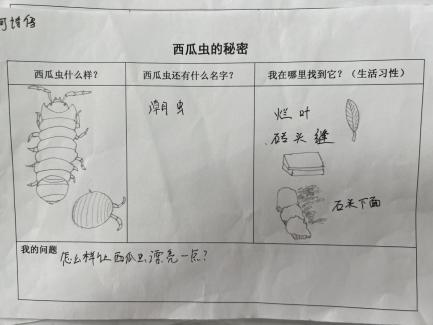 西瓜虫的秘密
西瓜虫什么样?
西瓜虫还有什么名字?
我在哪里找到它?(生活习性)
潮虫
烂叶
砖头缝
石头下面
我的问题
怎么样让西瓜虫漂亮一点?